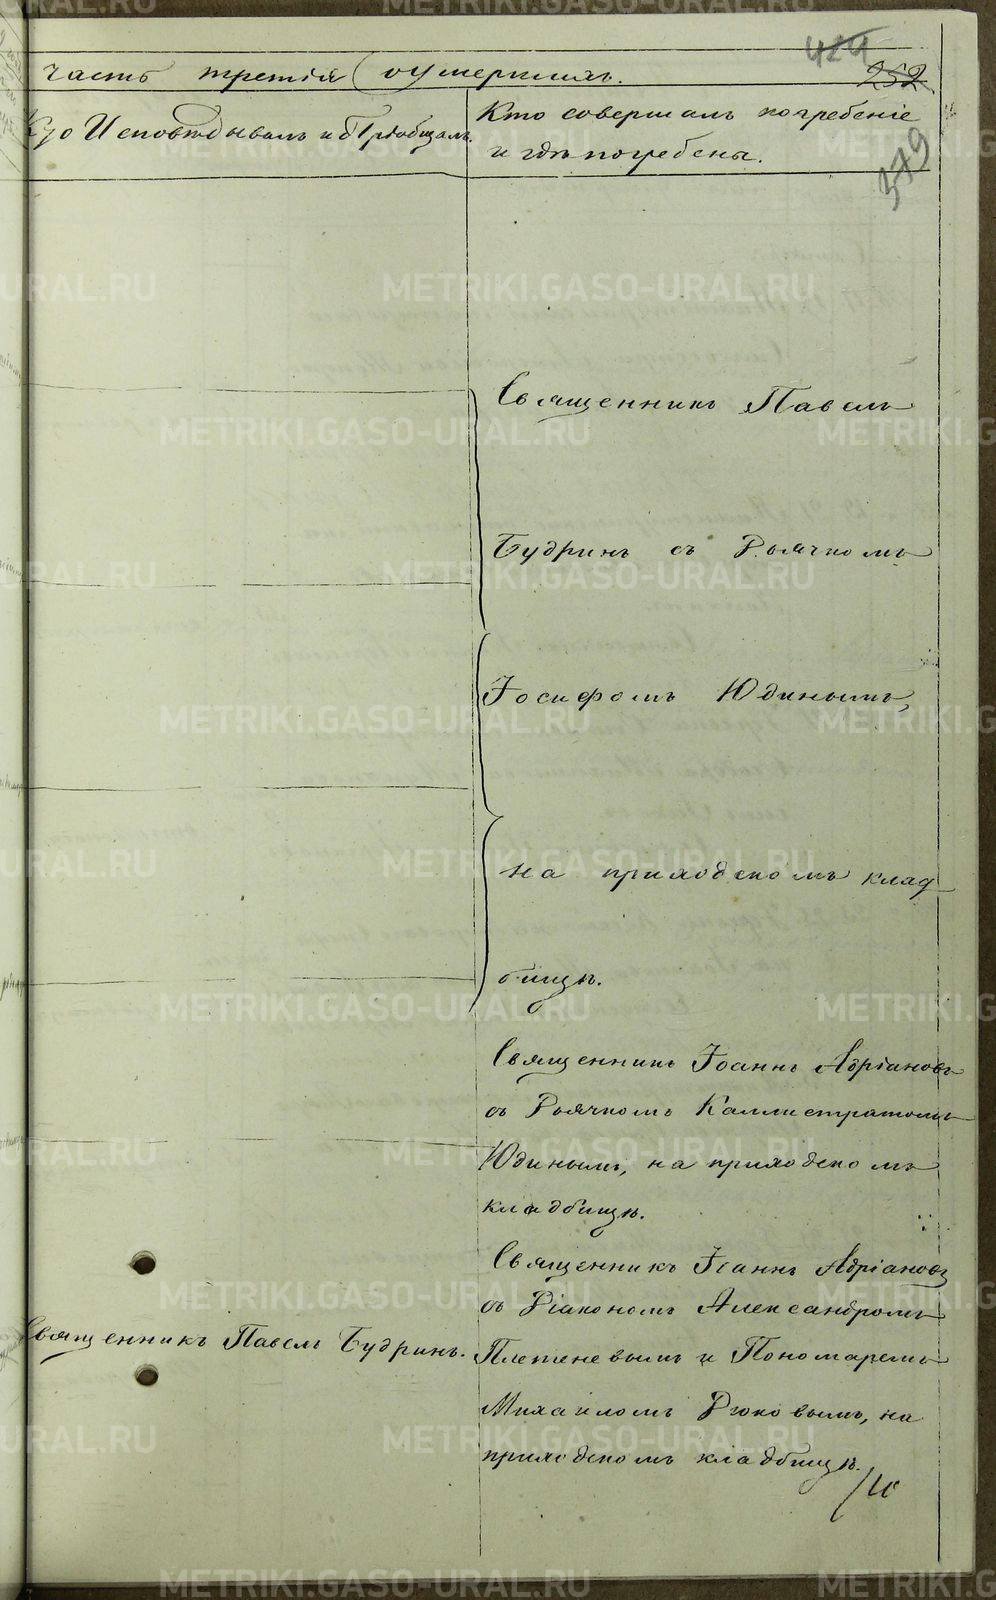 424
252
379
часть третія о умершихъ.
Кто Исповѣдывалъ и Пріобщалъ.
Кто совершалъ погребеніе
и гдѣ погребены.
Священникъ Павелъ
Будринъ съ Дьячкомъ
Іосифомъ Юдинымъ,
на приходскомъ клад
бищѣ.
Священникъ Іоаннъ Адріановъ
съ Дьячкомъ Каллистратомъ
Юдинымъ, на приходскомъ
кладбищѣ.
Священникъ Павелъ Будринъ.
Священникъ Іоаннъ Адріановъ
съ Діакономъ Александромъ
Плетеневымъ и Пономаремъ
Михаиломъ Рюковымъ, на
приходскомъ кладбищѣ.
METRIKI.GASO-URAL.RU